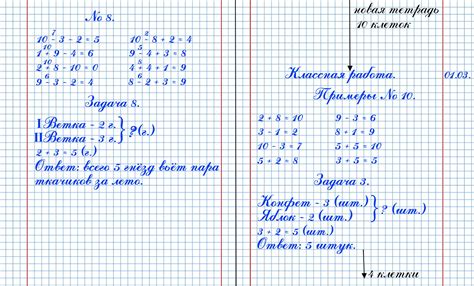 № 8.
10 - 3 - 2 = 5    10 - 8 + 2 = 4
1 + 9 - 4 = 6    9 - 5 + 4 = 8
2 + 8 - 10 = 0    4 + 4 + 1 = 9
9 - 3 - 2 = 4    8 - 2 + 3 = 9
Задача 8.
I Ветка - 2 г.
II Ветка - 3 г.
? (г.)
2 + 3 = 5 (г.)
Ответ: всего 5 гнёзд вьёт пара
ткачиков за лето.
новая тетрадь
10 клеток
Классная работа. 01.03.
Примеры № 10.
2 + 8 = 10    9 - 3 = 6
3 - 1 = 2    8 + 1 = 9
10 - 3 = 7    5 + 5 = 10
5 + 2 = 8    3 + 5 = 5
Задача 3.
Конфет - 3 (шт.)
Яблок - 2 (шт.)
? (шт.)
3 + 2 = 5 (шт.)
Ответ: 5 штук.
4 клетки